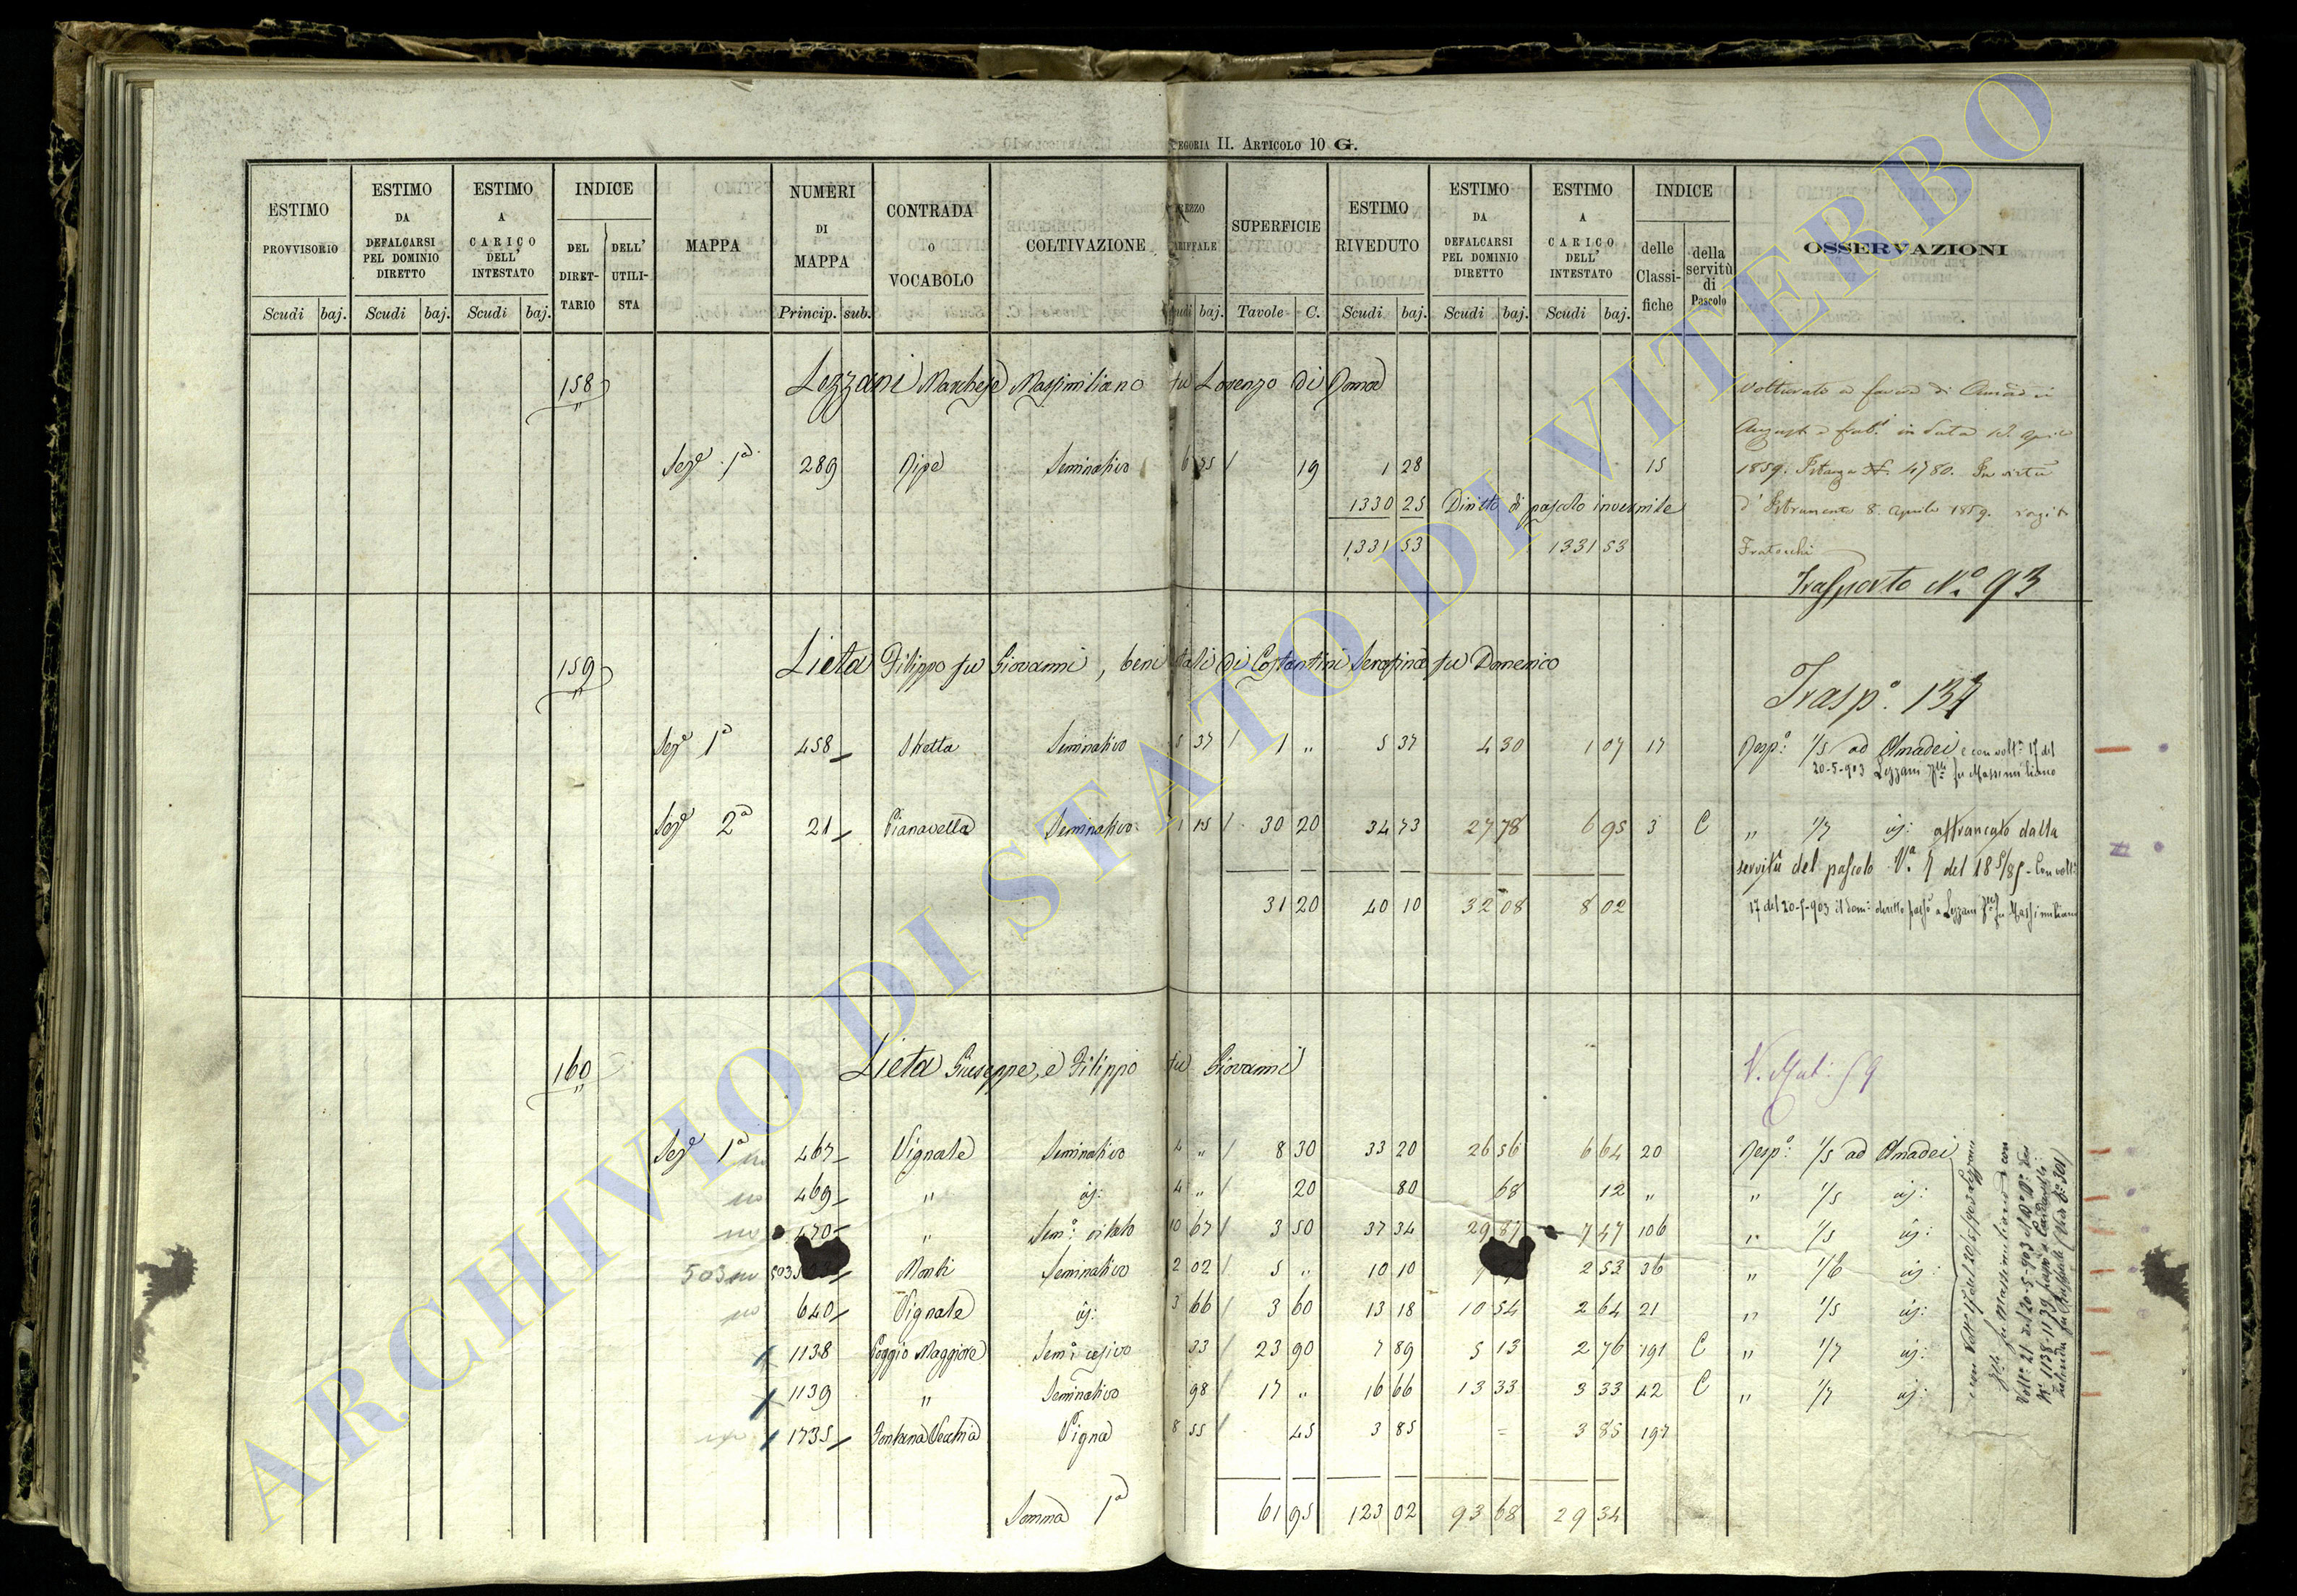 EGORIA II. ARTICOLO 10 G.
ESTIMO PROVVISORIO
ESTIMO DA DEFALCARSI PEL DOMINIO DIRETTO
ESTIMO A CARICO DELL' INTESTATO
INDICE
DEL DIRET-TARIO
DELL' UTILI-STA
MAPPA
NUMERI DI MAPPA
CONTRADA O VOCABOLO
COLTIVAZIONE
SUPERFICIE
ESTIMO RIVEDUTO
ESTIMO DA DEFALCARSI PEL DOMINIO DIRETTO
ESTIMO A CARICO DELL' INTESTATO
INDICE
delle Classi-fiche
della servitù di Pascolo
OSSERVAZIONI
Scudi baj. Scudi baj. Scudi baj. Princip. sub. baj. Tavole C. Scudi baj. Scudi baj. Scudi baj.
158 Lezzani Marchese Massimiliano fu Lorenzo di Roma
Volturato a favore di Amadei
Augusto e frat. in data 12. Aprile
Sez.e 1a 289 Ripe Seminativo 6 75 / 19 1 28 15 1859. Istanza N. 4780. In virtù
1330 25 Diritto di pascolo invernile d' Istrumento 8. Aprile 1859. rogito
1331 53 1331 53 Fratocchi
Trasporto No. 93
159 Lieta Filippo fu Giovanni, beni dotali di Costantini Serafina fu Domenico
Trasp.o 137
Sez.e 1a 458 Stretta Seminativo 5 37 / 1 " 5 37 4 30 1 07 17 Resp.o 1/5 ad Amadei e con volt.a 17 del
20-5-903 Lezzani fu Massimiliano
Sez.e 2a 21 Pianavella Seminativo 1 15 / 30 20 34 73 27 78 6 95 3 C " 1/7 id: affrancato dalla
servitù del pascolo V.a 9 del 18 5/85 - Con volt:
31 20 40 10 32 08 8 02 17 del 20-5-903 il dom: diretto passò a Lezzani fu Massimiliano
160 Lieta Giuseppe, e Filippo fu Giovanni
V. Mat: 59
Sez.e 1a no 467 Vignale Seminativo 4 " / 8 30 33 20 26 56 6 64 20 Resp.o 1/5 ad Amadei
no 469 " id: 4 " / 20 80 68 12 " " 1/5 id:
no 470 " Sem.o vitato 10 67 / 3 50 37 34 29 87 7 47 106 " 1/5 id:
503 no 503 Monti Seminativo 2 02 / 5 " 10 10 2 53 36 " 1/6 id:
no 640 Vignale id: 3 66 / 3 60 13 18 10 54 2 64 21 " 1/5 id:
1138 Poggio Maggiore Sem.o cesivo 33 / 23 90 7 89 5 13 2 76 191 C " 1/7 id:
1139 " Seminativo 98 / 17 " 16 66 13 33 3 33 42 C " 1/7 id:
1735 Fontana Vecchia Vigna 8 55 / 45 3 85 = 3 85 197
Somma 1a 61 95 123 02 93 68 29 34
ARCHIVIO DI STATO DI VITERBO